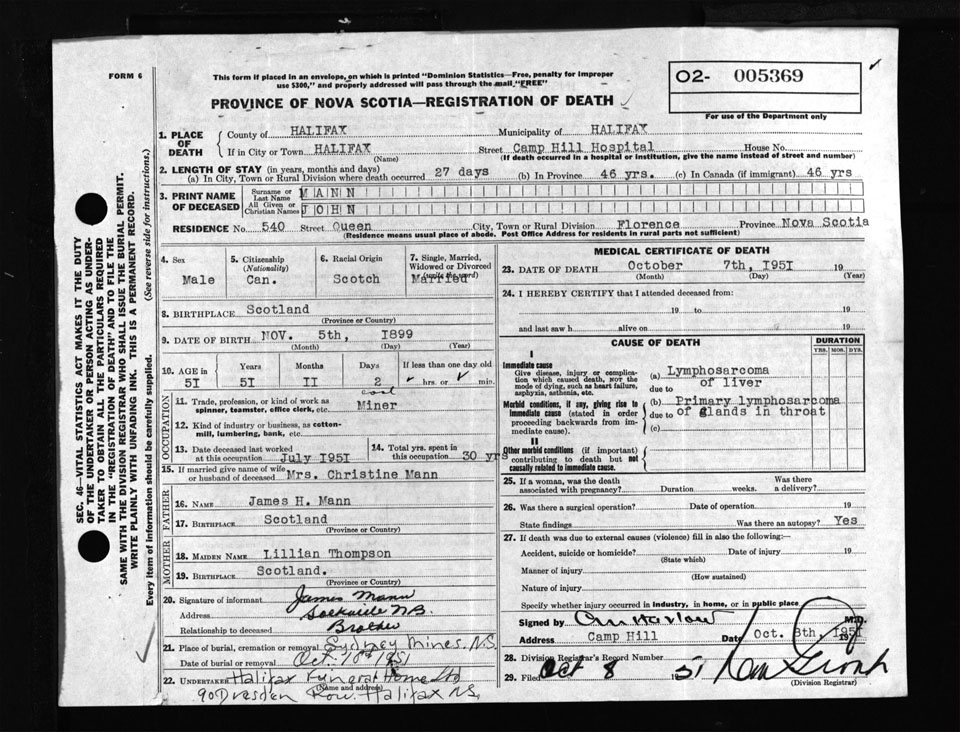 FORM 6
This form if placed in an envelope, on which is printed "Dominion Statistics—Free, penalty for improper
use $300," and properly addressed will pass through the mail "FREE"
O2- 005369
For use of the Department only
PROVINCE OF NOVA SCOTIA—REGISTRATION OF DEATH
SEC. 46—VITAL STATISTICS ACT MAKES IT THE DUTY
OF THE UNDERTAKER OR PERSON ACTING AS UNDER-
TAKER TO OBTAIN ALL THE PARTICULARS REQUIRED
IN THE "REGISTRATION OF DEATH" AND TO FILE THE
SAME WITH THE DIVISION REGISTRAR WHO SHALL ISSUE THE BURIAL PERMIT.
WRITE PLAINLY WITH UNFADING INK. THIS IS A PERMANENT RECORD.
Every item of information should be carefully supplied. (See reverse side for instructions.)
1. PLACE OF DEATH
County of HALIFAX Municipality of HALIFAX
If in City or Town HALIFAX Street Camp Hill Hospital House No.
(Name) (If death occurred in a hospital or institution, give the name instead of street and number)
2. LENGTH OF STAY (in years, months and days)
(a) In City, Town or Rural Division where death occurred 27 days (b) In Province 46 yrs. (c) In Canada (if immigrant) 46 yrs
3. PRINT NAME OF DECEASED
Surname or Last Name MANN
All Given or Christian Names JOHN
RESIDENCE No. 540 Street Queen City, Town or Rural Division Florence Province Nova Scotia
(Residence means usual place of abode. Post Office Address for residents in rural parts not sufficient)
4. Sex
Male
5. Citizenship
(Nationality)
Can.
6. Racial Origin
Scotch
7. Single, Married,
Widowed or Divorced
(write the word)
Married
8. BIRTHPLACE Scotland
(Province or Country)
9. DATE OF BIRTH NOV. 5th, I899
(Month) (Day) (Year)
10. AGE IN Years Months Days If less than one day old
5I 5I II 2 hrs. or min.
OCCUPATION
coal
11. Trade, profession, or kind of work as Miner
spinner, teamster, office clerk, etc.
12. Kind of industry or business, as cotton-
mill, lumbering, bank, etc.
13. Date deceased last worked
at this occupation July I95I
14. Total yrs. spent in
this occupation 30 yrs
15. If married give name of wife
or husband of deceased Mrs. Christine Mann
FATHER
16. NAME James H. Mann
17. BIRTHPLACE Scotland
(Province or Country)
MOTHER
18. MAIDEN NAME Lillian Thompson
19. BIRTHPLACE Scotland.
(Province or Country)
20. Signature of informant James Mann
Address Sackville N.B.
Relationship to deceased Brother
21. Place of burial, cremation or removal Sydney Mines. N.S.
Date of burial or removal Oct. 10th 1951
22. UNDERTAKER Halifax Funeral Home Ltd
(Name and address)
90 Dresden Row. Halifax N.S.
MEDICAL CERTIFICATE OF DEATH
23. DATE OF DEATH October 7th, I95I 19
(Month) (Day) (Year)
24. I HEREBY CERTIFY that I attended deceased from:
19 to 19
and last saw h alive on 19
CAUSE OF DEATH
DURATION
YRS. MOS. DYS.
I
Immediate cause
Give disease, injury or complica-
tion which caused death, NOT the
mode of dying, such as heart failure,
asphyxia, asthenia, etc.
(a) Lymphosarcoma
due to of liver
Morbid conditions, if any, giving rise to
immediate cause (stated in order
proceeding backwards from im-
mediate cause).
(b) Primary lymphosarcoma
due to of glands in throat
(c)
II
Other morbid conditions (if important)
contributing to death but not
causally related to immediate cause.
25. If a woman, was the death
associated with pregnancy? Duration weeks. Was there
a delivery?
26. Was there a surgical operation? Date of operation 19
State findings Was there an autopsy? Yes
27. If death was due to external causes (violence) fill in also the following:—
Accident, suicide or homicide? Date of injury 19
(State which)
Manner of injury
(How sustained)
Nature of injury
Specify whether injury occurred in industry, in home, or in public place
Signed by M.D.
Address Camp Hill Date Oct. 8th, I95I 19
28. Division Registrar's Record Number
29. Filed Oct 8 1951
(Division Registrar)